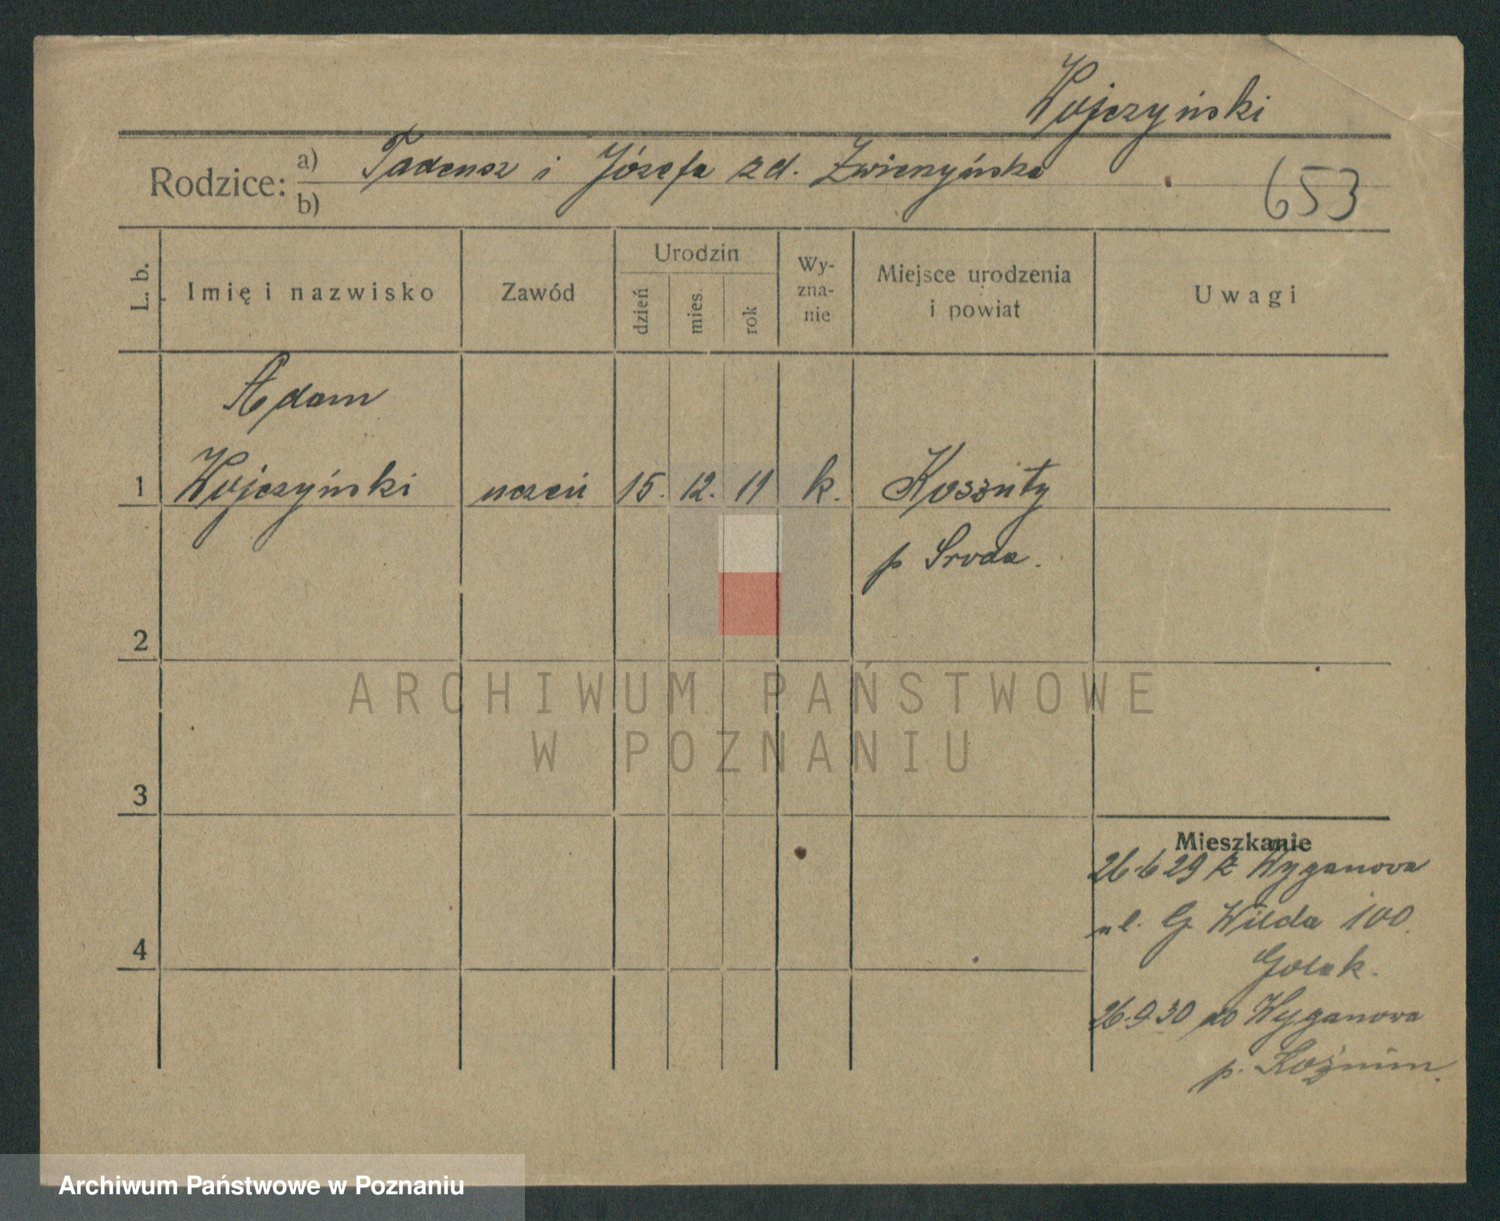 Wojczyński
Rodzice: a) Tadeusz i Józefa zd. Zwierzyńska
b)
653
L. b.
Imię i nazwisko
Zawód
Urodzin
dzień
mies.
rok
Wy-
zna-
nie
Miejsce urodzenia
i powiat
Uwagi
Adam
1 Wojczyński uczeń 15. 12. 11 k. Koszuty
p Sroda.
2
ARCHIWUM PAŃSTWOWE
W POZNANIU
3
Mieszkanie
26.6 29 z Wyganowa
ul. G Wilda 100.
4
26.9.30 do Wyganowa
p. Koźmin.
Archiwum Państwowe w Poznaniu